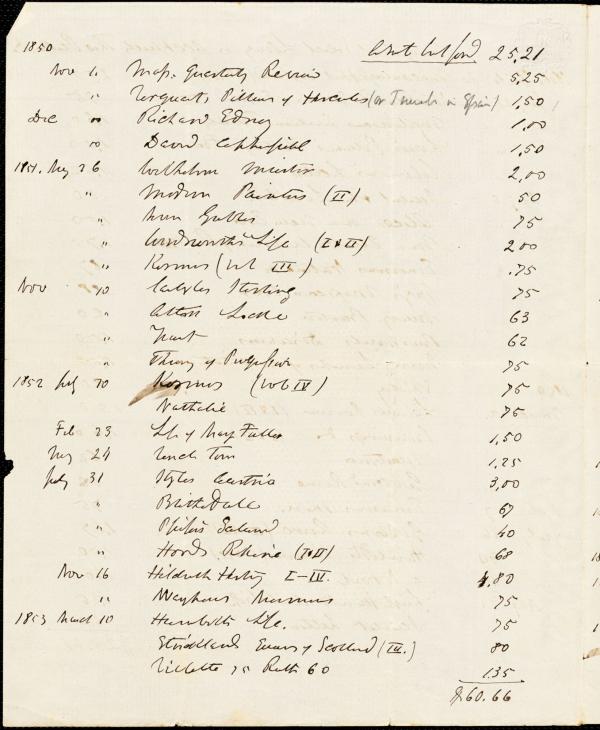 1850 Amt bt ford. 25.21
Nov 1. Mass. Quarterly Review 5.25
" Urquhart's Pillars of Hercules (or Travels in Spain) 1,50
Dec " Richard Edney 1,00
" David Copperfield 1,50
1851. May 26 Wilhelm Meister 2,00
" Modern Painters (II) 50
" 75
" Wordsworth's Life (I & II) 200
" Kosmos (vol III) .75
Nov 10 Carlyles Sterling 75
" Alton Locke 63
" Yeast 62
" Theory of 75
1852 70 Kosmos (vol IV) 75
Nathalie 75
Feb 23 Life of Marg Fuller 1,50
24 Uncle Tom 1,25
July 31 Styles Austria 3,00
" Blithedale 67
" 40
" Hoods Rhine (I & II) 68
Nov 16 Hildreth History I–IV. 4.80
" Mayhew Mormons 75
1853 March 10 Humboldt Life. 75
Stricklands Queens of Scotland (III.) 80
Villette 75 Ruth 60 1.35
$60.66